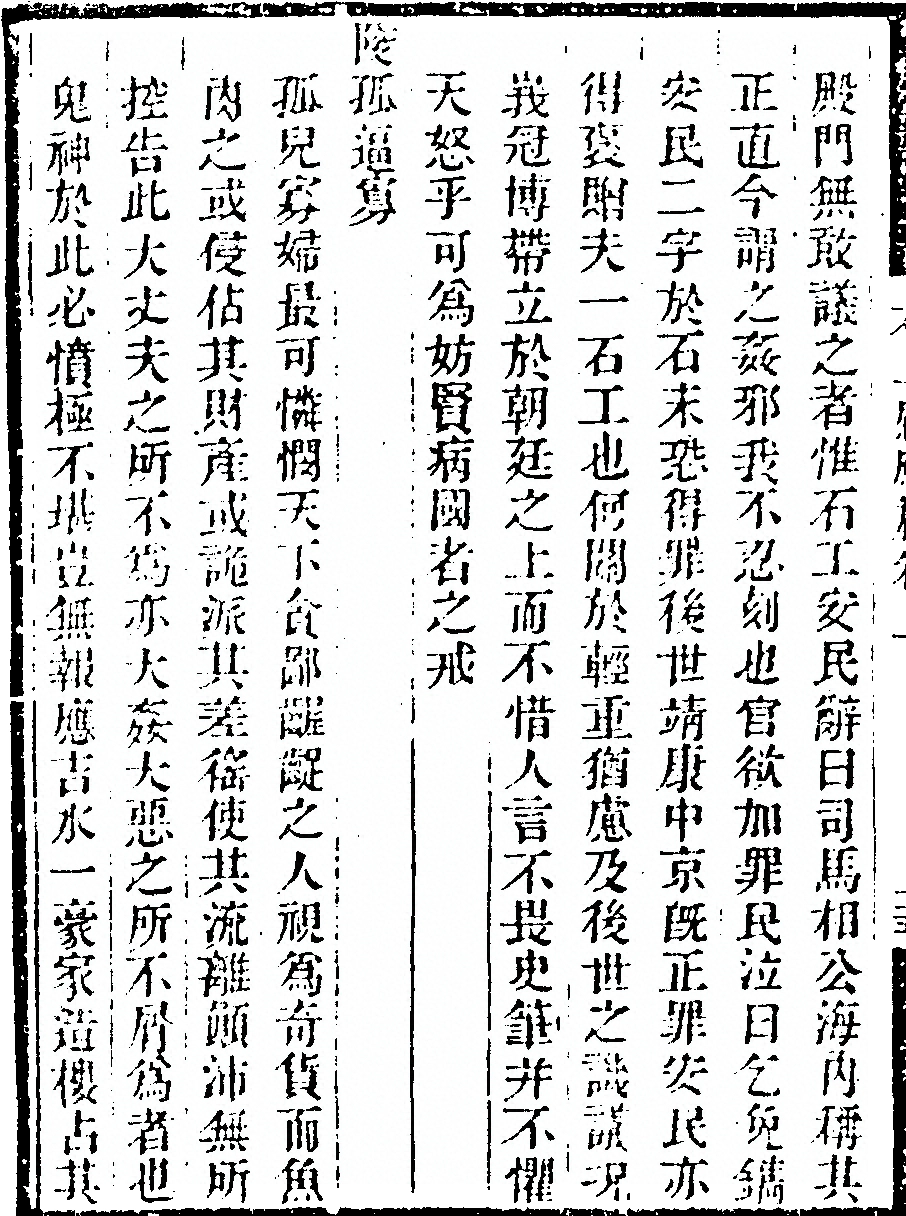 殿門無敢議之者惟石工安民辭曰司馬相公海內稱其
正直今謂之姦邪我不忍刻也官欲加罪民泣曰乞免鐫
安民二字於石末恐得罪後世靖康中京旣正罪安民亦
得褒贈夫一石工也何關於輕重猶慮及後世之譏議况
峩冠博帶立於朝廷之上而不惜人言不畏史筆并不懼
天怒乎可爲妨賢病國者之戒
陵孤逼寡
孤兒寡婦最可憐憫天下貪鄙齷齪之人視爲奇貨而魚
肉之或侵佔其財產或詭派其差徭使其流離顚沛無所
控告此大丈夫之所不爲亦大姦大惡之所不屑爲者也
鬼神於此必憤極不堪豈無報應吉水一豪家造樓占其